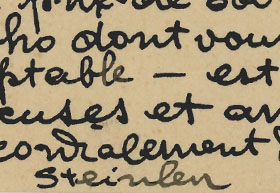 prix de
ho dont vou
ptable — est
euses et am
cordialement
Steinlen